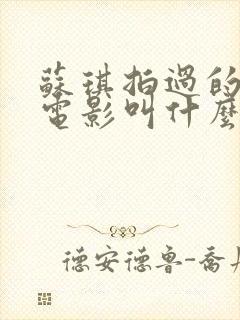 蘇琪拍過的
電影叫什麼
德安德鲁-喬丹